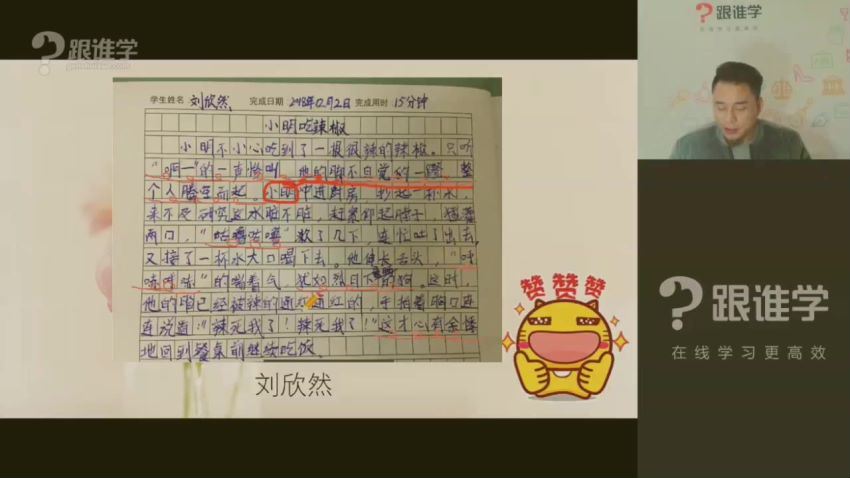 跟谁学
genshuixue.com
学生姓名 刘欣然 完成日期 2018年12月2日 完成用时 15分钟
小明吃辣椒
小明不小心吃到了一根很辣的辣椒。只听
“啊—”的一声惨叫，他的脚不自觉的一蹬，整
个人腾空而起。小明冲进厨房，抄起一杯水，
来不及研究这水脏不脏，赶紧仰起脖子，猛灌
两口，“咕噜咕噜”漱了几下，连忙吐了出去，
又接了一杯水大口喝下去。他伸长舌头，“呼
哧呼哧”的喘着气，犹如烈日下的狗。这时，
他的脸已经被辣的通红通红的，手拍着胸口连
连说道：“辣死我了！辣死我了！”这才心有余悸
地回到餐桌前继续吃饭。
刘欣然
赞赞赞
跟谁学
在线学习更高效
跟谁学
在线学习更高效